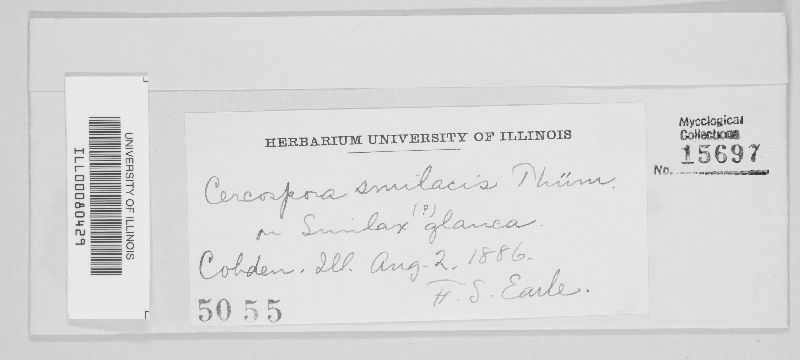 HERBARIUM UNIVERSITY OF ILLINOIS
Cercospora smilacis Thüm.
on Smilax (?) glauca.
Cobden. Ill. Aug. 2. 1886.
F. S. Earle.
5055
Mycological
Collections
No. 15697
UNIVERSITY OF ILLINOIS
ILL00080429